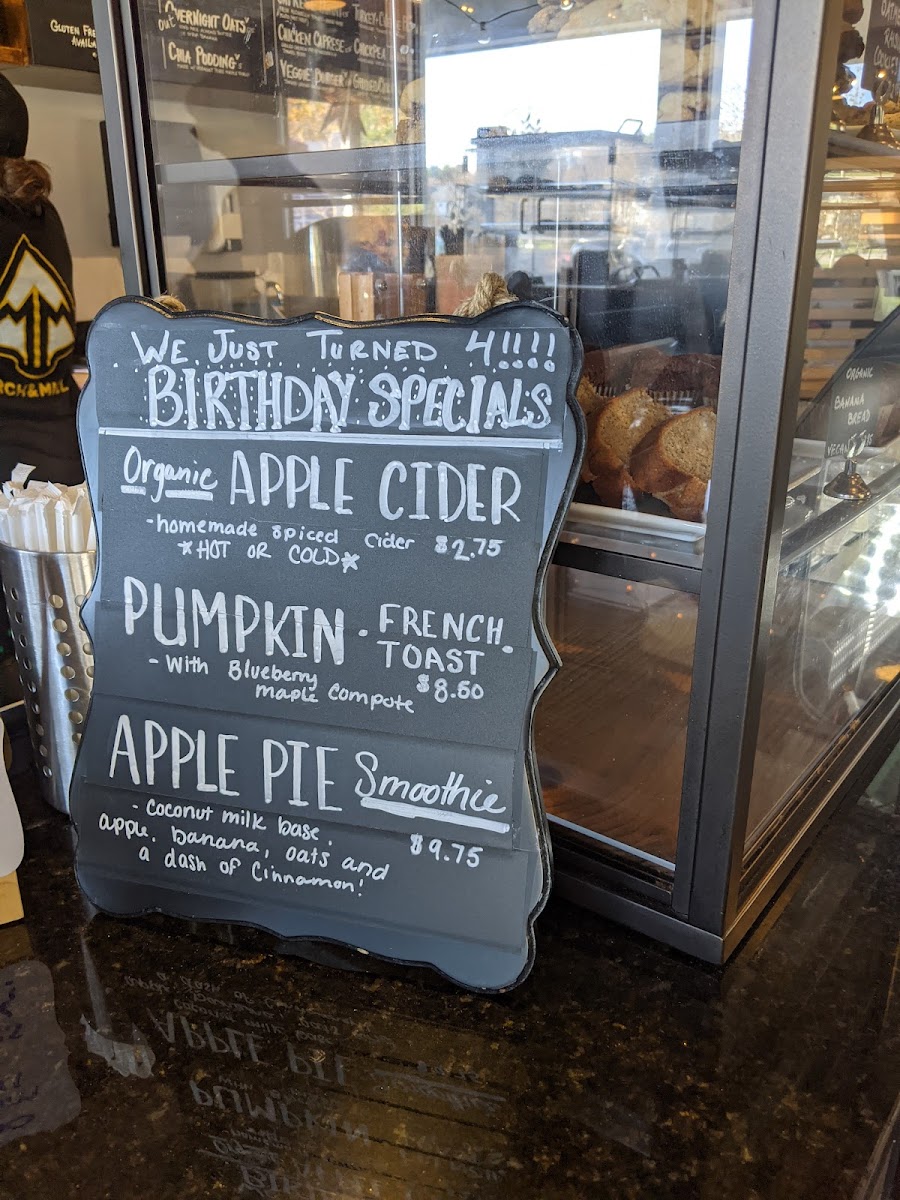 GLUTEN FREE
AVAILABLE
OVERNIGHT OATS
CHIA PUDDING
CHICKEN CAPRESE
CHICKPEA
VEGGIE BURGER
ORGANIC
BANANA
BREAD
WE JUST TURNED 4!!!!
BIRTHDAY SPECIALS
Organic APPLE CIDER
-homemade spiced cider $2.75
*HOT OR COLD*
PUMPKIN - FRENCH TOAST -
- With Blueberry maple compote $8.50
APPLE PIE Smoothie
- coconut milk base,
apple, banana, oats and
a dash of cinnamon!
$9.75